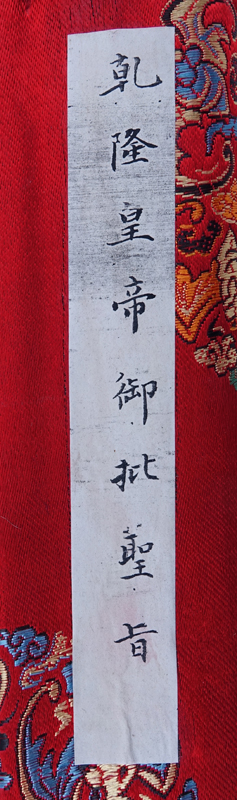 乾隆皇帝御批聖旨